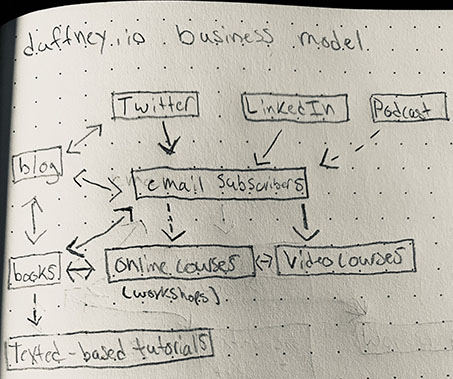 duffney.io business model
Twitter
LinkedIn
Podcast
blog
email Subscribers
books
Online courses
Video courses
(workshops)
Texted-based tutorials